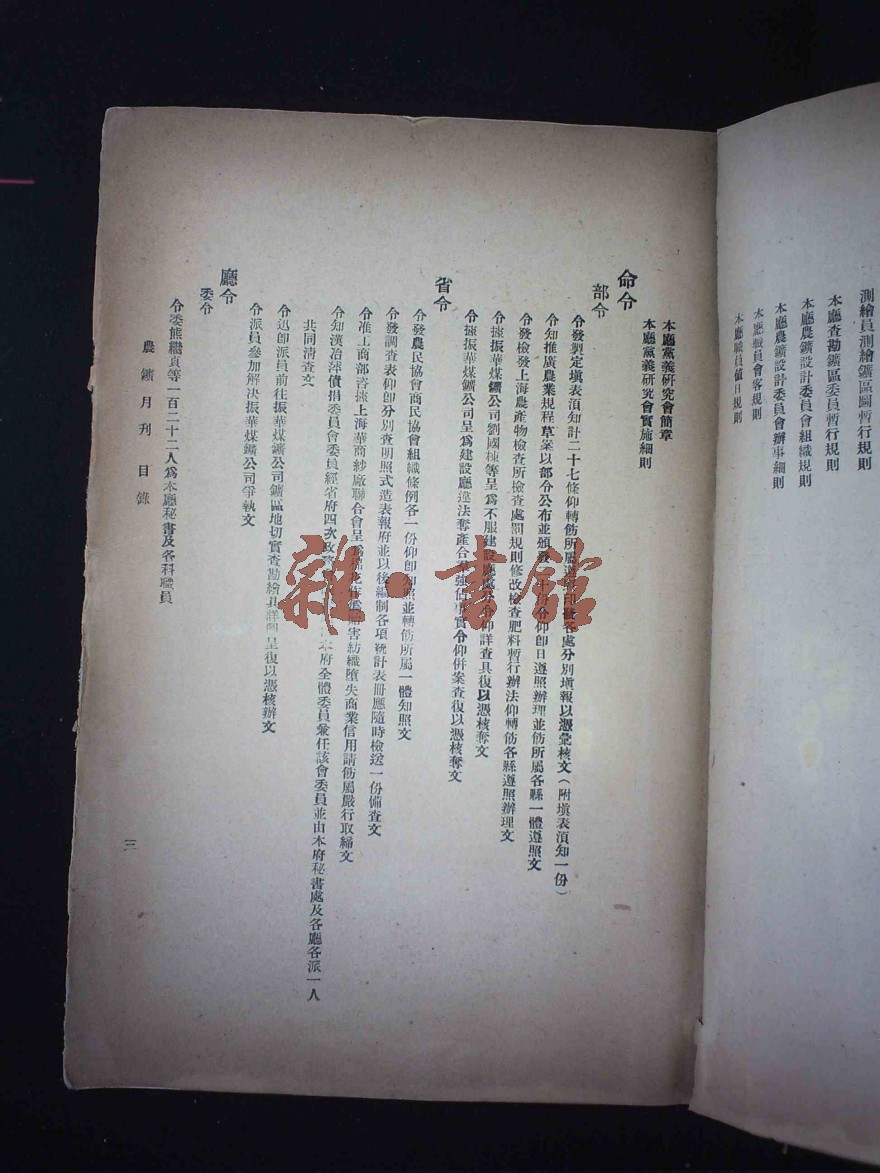 測繪員測繪鑛區圖暫行規則
本廳查勘鑛區委員暫行規則
本廳農鑛設計委員會組織規則
本廳農鑛設計委員會辦事細則
本廳職員會客規則
本廳職員值日規則
本廳黨義研究會簡章
本廳黨義研究會實施細則
命令
部令
令發製定填表須知計二十七條仰轉飭所屬各處分別填報以憑彙核文(附填表須知一份)
令知推廣農業規程草案以部令公布並頒發令仰卽日遵照辦理並飭所屬各縣一體遵照文
令發檢發上海農產物檢查所檢查處罰規則修改檢查肥料暫行辦法仰轉飭各縣遵照辦理文
令據振華煤鑛公司劉國棟等呈爲不服建設廳處分令仰詳查具復以憑核奪文
令據振華煤鑛公司呈爲建設廳違法奪產令仰併案查復以憑核奪文
省令
令發農民協會商民協會組織條例各一份仰卽知照並轉飭所屬一體知照文
令發調查表仰卽分別查明照式造表報府並以後編制各項統計表冊應隨時檢送一份備查文
令准工商部咨據上海華商紗廠聯合會呈爲棉花作僞貽害紡織墮失商業信用請飭屬嚴行取締文
令知漢冶萍債捐委員會委員經省府四次政務本府全體委員兼任該會委員並由本府秘書處及各廳各派一人
共同清查文
令迅卽派員前往振華煤鑛公司鑛區地切實查勘繪具詳圖呈復以憑核辦文
令派員參加解決振華煤鑛公司爭執文
廳令
委令
令委熊繼貞等一百二十二人爲本廳秘書及各科職員
農鑛月刊目錄
三
雜·書館